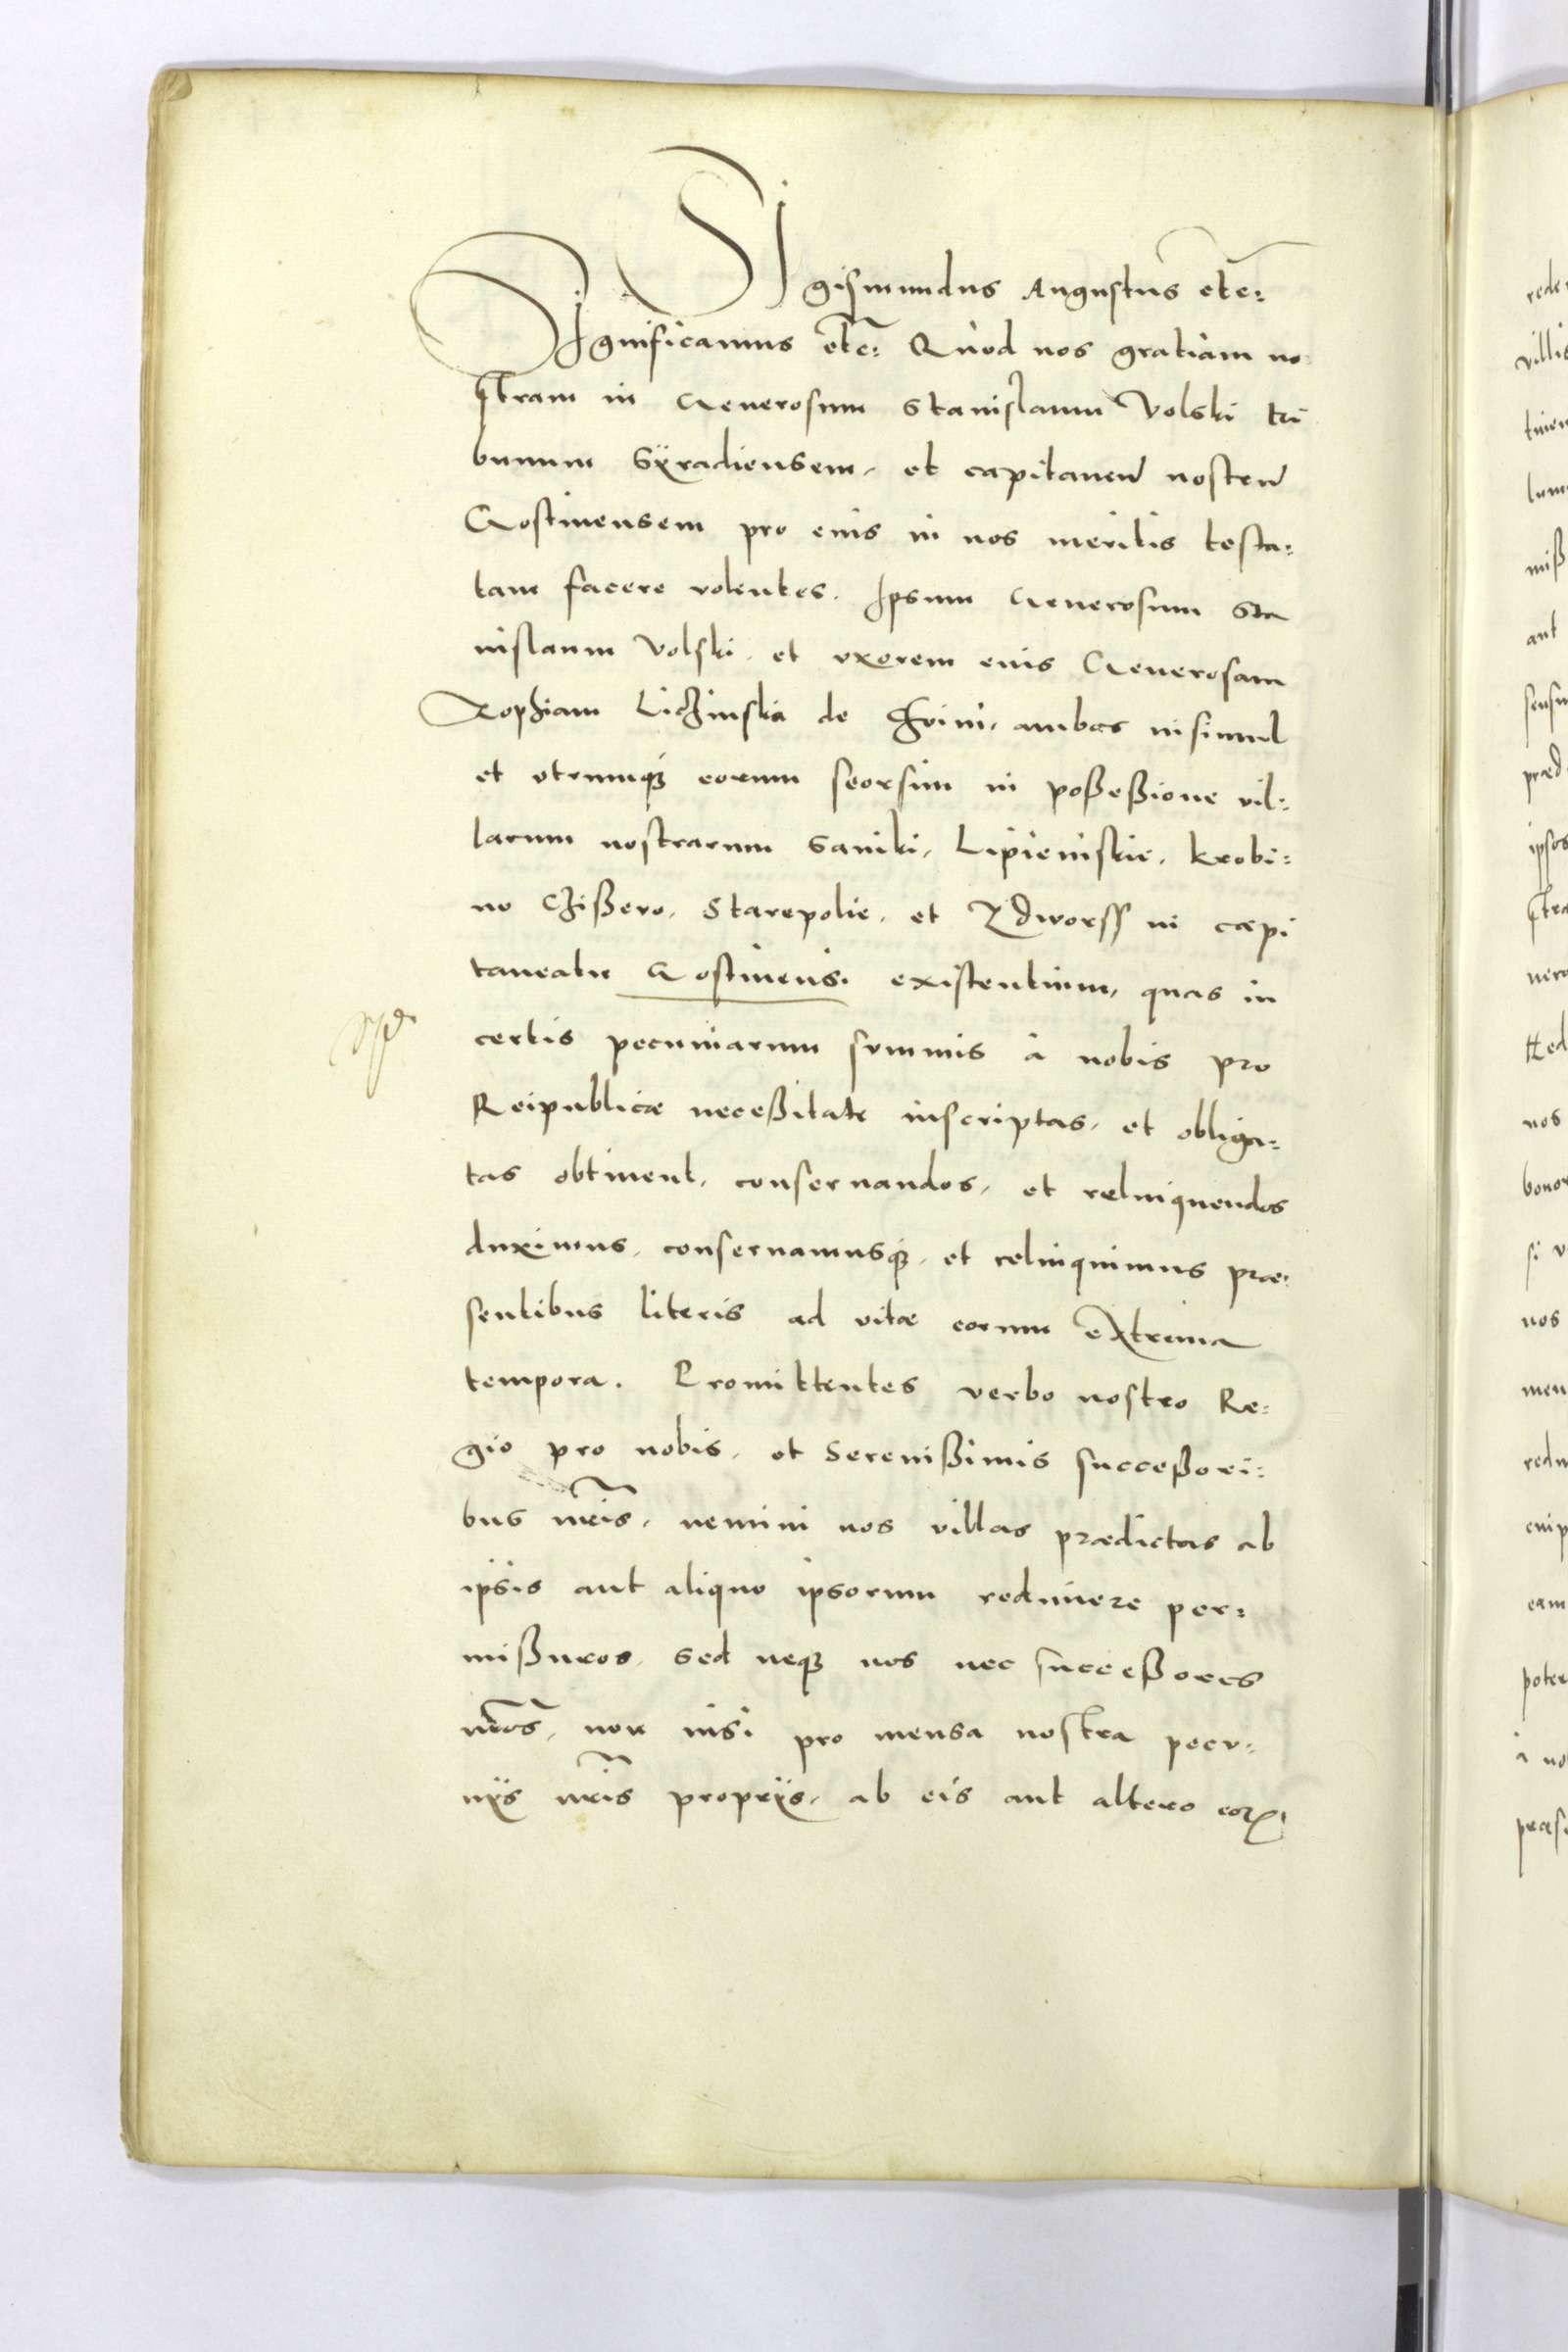 SIgismundus Augustus etc:
SIgnificamus etc: Quod nos gratiam no
stram in Generosum Stanislaum Volski tri
bunum Syradiensem, et capitaneum nostrum
Gostinensem pro eius in nos meritis testa:
tam facere volentes. Ipsum Generosum Sta
nislaum Volski, et vxorem eius Generosam
Zophiam Lichinska de ambos insimul
et vtrumque eorum seorsim in poßeßione vil:
larum nostrarum Saniki, Lipieniskie, Krobi:
no Czißero, Starepolie, et Zdworss in capi
taneatu Gostinensi existentium, quas in
certis pecuniarum summis à nobis pro
Reipublicæ neceßitate inscriptas, et obliga:
tas obtinent, conseruandos, et relinquendos
duximus, conseruamusque, et relinquimus præ:
sentibus literis ad vitæ eorum extrema
tempora. Promittentes verbo nostro Re:
gio pro nobis, et Serenißimis succeßori:
bus nris, nemini nos villas prædictas ab
ipsis aut aliquo ipsorum redimere per:
mißuros, sed neque nos nec succeßores
nros, non nisi pro mensa nostra pecu:
nijs nris proprijs, ab eis aut altero eorum